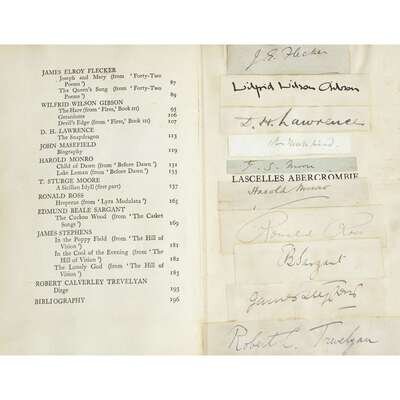 JAMES ELROY FLECKER
Joseph and Mary (from 'Forty-Two
Poems') 87
The Queen's Song (from 'Forty-Two
Poems') 89
WILFRID WILSON GIBSON
The Hare (from 'Fires,' Book III) 95
Geraniums 106
Devil's Edge (from 'Fires,' Book III) 107
D. H. LAWRENCE
The Snapdragon 113
JOHN MASEFIELD
Biography 119
HAROLD MONRO
Child of Dawn (from 'Before Dawn') 131
Lake Leman (from 'Before Dawn') 133
T. STURGE MOORE
A Sicilian Idyll (first part) 137
RONALD ROSS
Hesperus (from 'Lyra Modulata') 165
EDMUND BEALE SARGANT
The Cuckoo Wood (from 'The Casket
Songs') 169
JAMES STEPHENS
In the Poppy Field (from 'The Hill
of Vision') 181
In the Cool of the Evening (from 'The
Hill of Vision') 182
The Lonely God (from 'The Hill of
Vision') 183
ROBERT CALVERLEY TREVELYAN
Dirge 193
BIBLIOGRAPHY 196
J. E. Flecker
Wilfrid Wilson Gibson
D. H. Lawrence
John Masefield
T. S. Moore
LASCELLES ABERCROMBIE
Harold Monro
Ronald Ross
Sargant
James Stephens
Robert C. Trevelyan